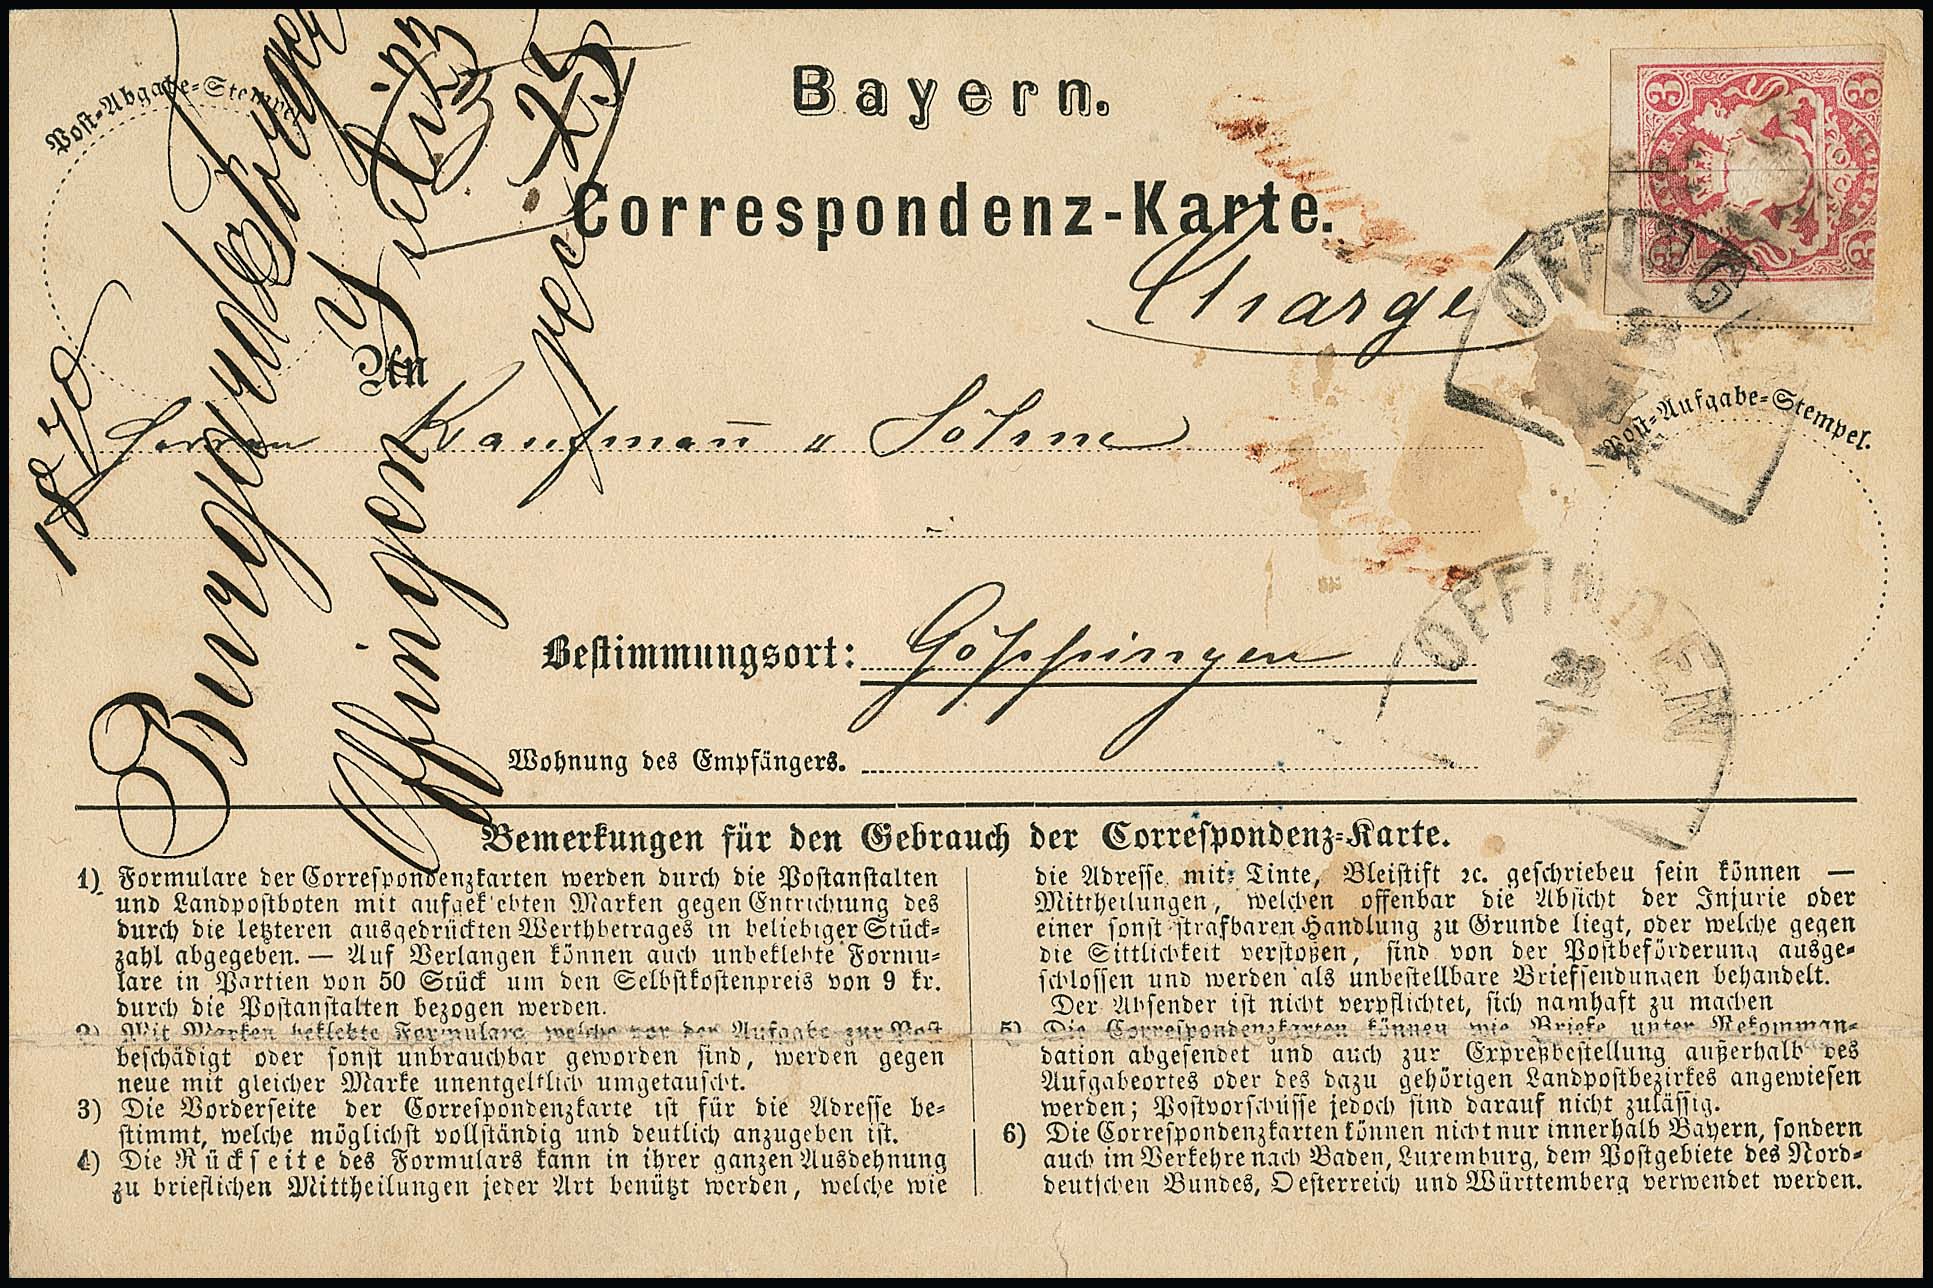 Post-Abgabe-Stempel
Bayern.
3 3
BAYERN
KREUZER
3 3
Correspondenz-Karte.
Charge
OFFINGEN
Post-Aufgabe-Stempel.
1870
Burgardestager
Offingen
23
25
An
Herren Kaufmann u Söhne
Bestimmungsort: Göppingen
OFFINGEN
23
Wohnung des Empfängers.
Bemerkungen für den Gebrauch der Correspondenz-Karte.
1) Formulare der Correspondenzkarten werden durch die Postanstalten
und Landpostboten mit aufgeklebten Marken gegen Entrichtung des
durch die letzteren ausgedrückten Werthbetrages in beliebiger Stück-
zahl abgegeben. — Auf Verlangen können auch unbeklebte Formu-
lare in Partien von 50 Stück um den Selbstkostenpreis von 9 kr.
durch die Postanstalten bezogen werden.
2) Mit Marken beklebte Formulare, welche vor der Aufgabe zur Post
beschädigt oder sonst unbrauchbar geworden sind, werden gegen
neue mit gleicher Marke unentgeltlich umgetauscht.
3) Die Vorderseite der Correspondenzkarte ist für die Adresse be-
stimmt, welche möglichst vollständig und deutlich anzugeben ist.
4) Die Rückseite des Formulars kann in ihrer ganzen Ausdehnung
zu brieflichen Mittheilungen jeder Art benützt werden, welche wie
die Adresse mit Tinte, Bleistift ꝛc. geschrieben sein können —
Mittheilungen, welchen offenbar die Absicht der Injurie oder
einer sonst strafbaren Handlung zu Grunde liegt, oder welche gegen
die Sittlichkeit verstoßen, sind von der Postbeförderung ausge-
schlossen und werden als unbestellbare Briefsendungen behandelt.
Der Absender ist nicht verpflichtet, sich namhaft zu machen
5) Die Correspondenzkarten können wie Briefe unter Rekomman-
dation abgesendet und auch zur Expreßbestellung außerhalb des
Aufgabeortes oder des dazu gehörigen Landpostbezirkes angewiesen
werden; Postvorschüsse jedoch sind darauf nicht zulässig.
6) Die Correspondenzkarten können nicht nur innerhalb Bayern, sondern
auch im Verkehre nach Baden, Luxemburg, dem Postgebiete des Nord-
deutschen Bundes, Oesterreich und Württemberg verwendet werden.